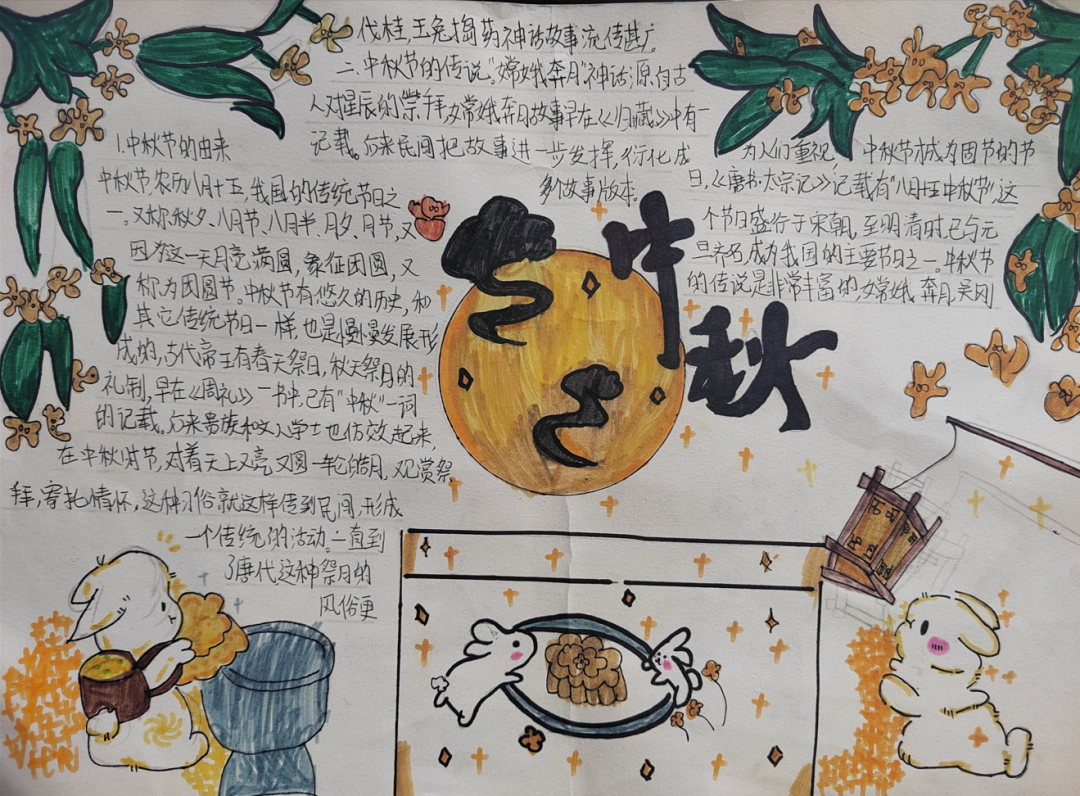 1.中秋节的由来
中秋节,农历八月十五,我国的传统节日之
一。又称秋夕、八月节、八月半、月夕、月节,又
因为这一天月亮满圆,象征团圆,又
称为团圆节。中秋节有悠久的历史,和
其它传统节日一样,也是慢慢发展形
成的,古代帝王有春天祭日,秋天祭月的
礼制,早在《周礼》一书中,已有“中秋”一词
的记载。后来贵族和文人学士也仿效起来,
在中秋时节,对着天上又亮又圆一轮皓月,观赏祭
拜,寄托情怀,这种习俗就这样传到民间,形成
一个传统的活动。一直到
了唐代这种祭月的
风俗更
为人们重视,中秋节成为固节的节
日,《唐书·太宗记》记载有“八月十五中秋节”,这
个节日盛行于宋朝,至明清时已与元
旦齐名,成为我国的主要节日之一。中秋节
的传说是非常丰富的,嫦娥奔月,吴刚
伐桂,玉兔捣药神话故事流传甚广。
二.中秋节的传说。“嫦娥奔月”神话源自古
人对星辰的崇拜,嫦娥奔月故事早在《归藏》中有
记载。后来民间把故事进一步发挥,衍化成
多个故事版本。
中
秋